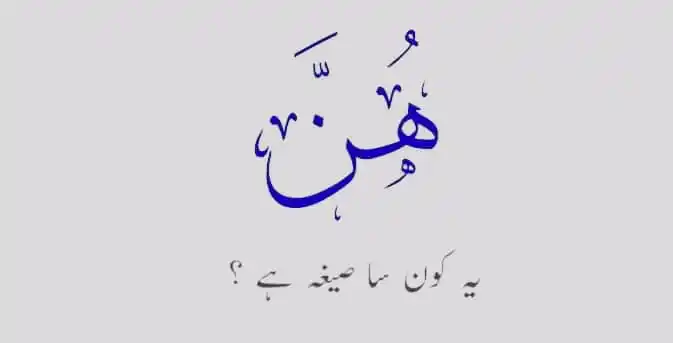 هُنَّ
یہ کون سا صیغہ ہے ؟